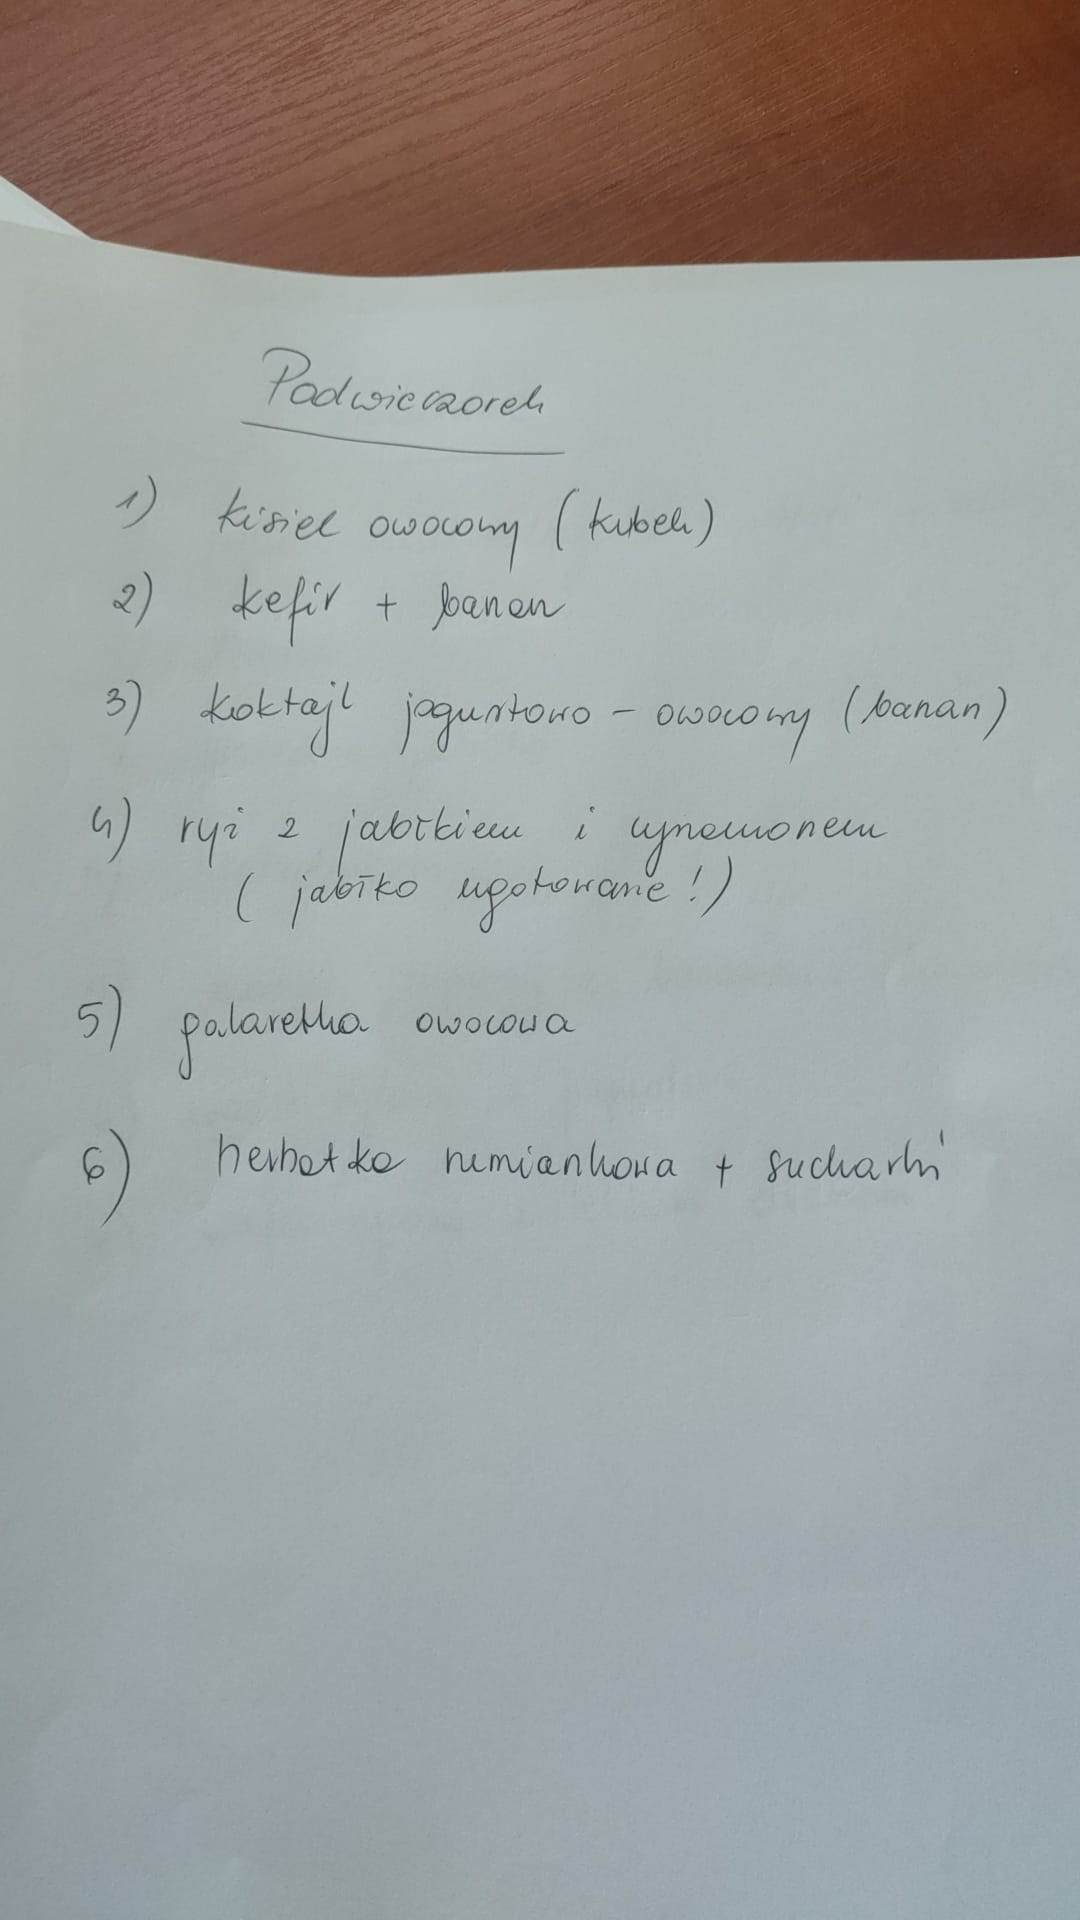 Podwieczorek
1) kisiel owocowy (kubek)
2) kefir + banan
3) koktajl jogurtowo - owocowy (banan)
4) ryż z jabłkiem i cynamonem
( jabłko ugotowane!)
5) galaretka owocowa
6) herbatka rumiankowa + sucharki